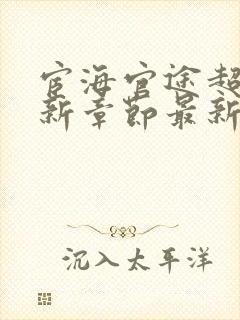 宦海官途超
新章节最新
沉入太平洋